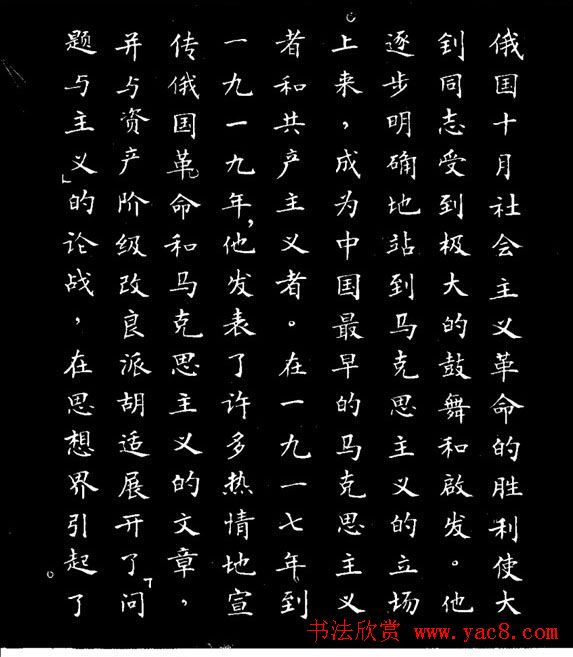 俄国十月社会主义革命的胜利使大
钊同志受到极大的鼓舞和啟发。他
逐步明确地站到马克思主义的立场
上来，成为中国最早的马克思主义
者和共产主义者。在一九一七年到
一九一九年，他发表了许多热情地宣
传俄国革命和马克思主义的文章，
并与资产阶级改良派胡适展开了「问
题与主义」的论战，在思想界引起了
书法欣赏 www.yac8.com